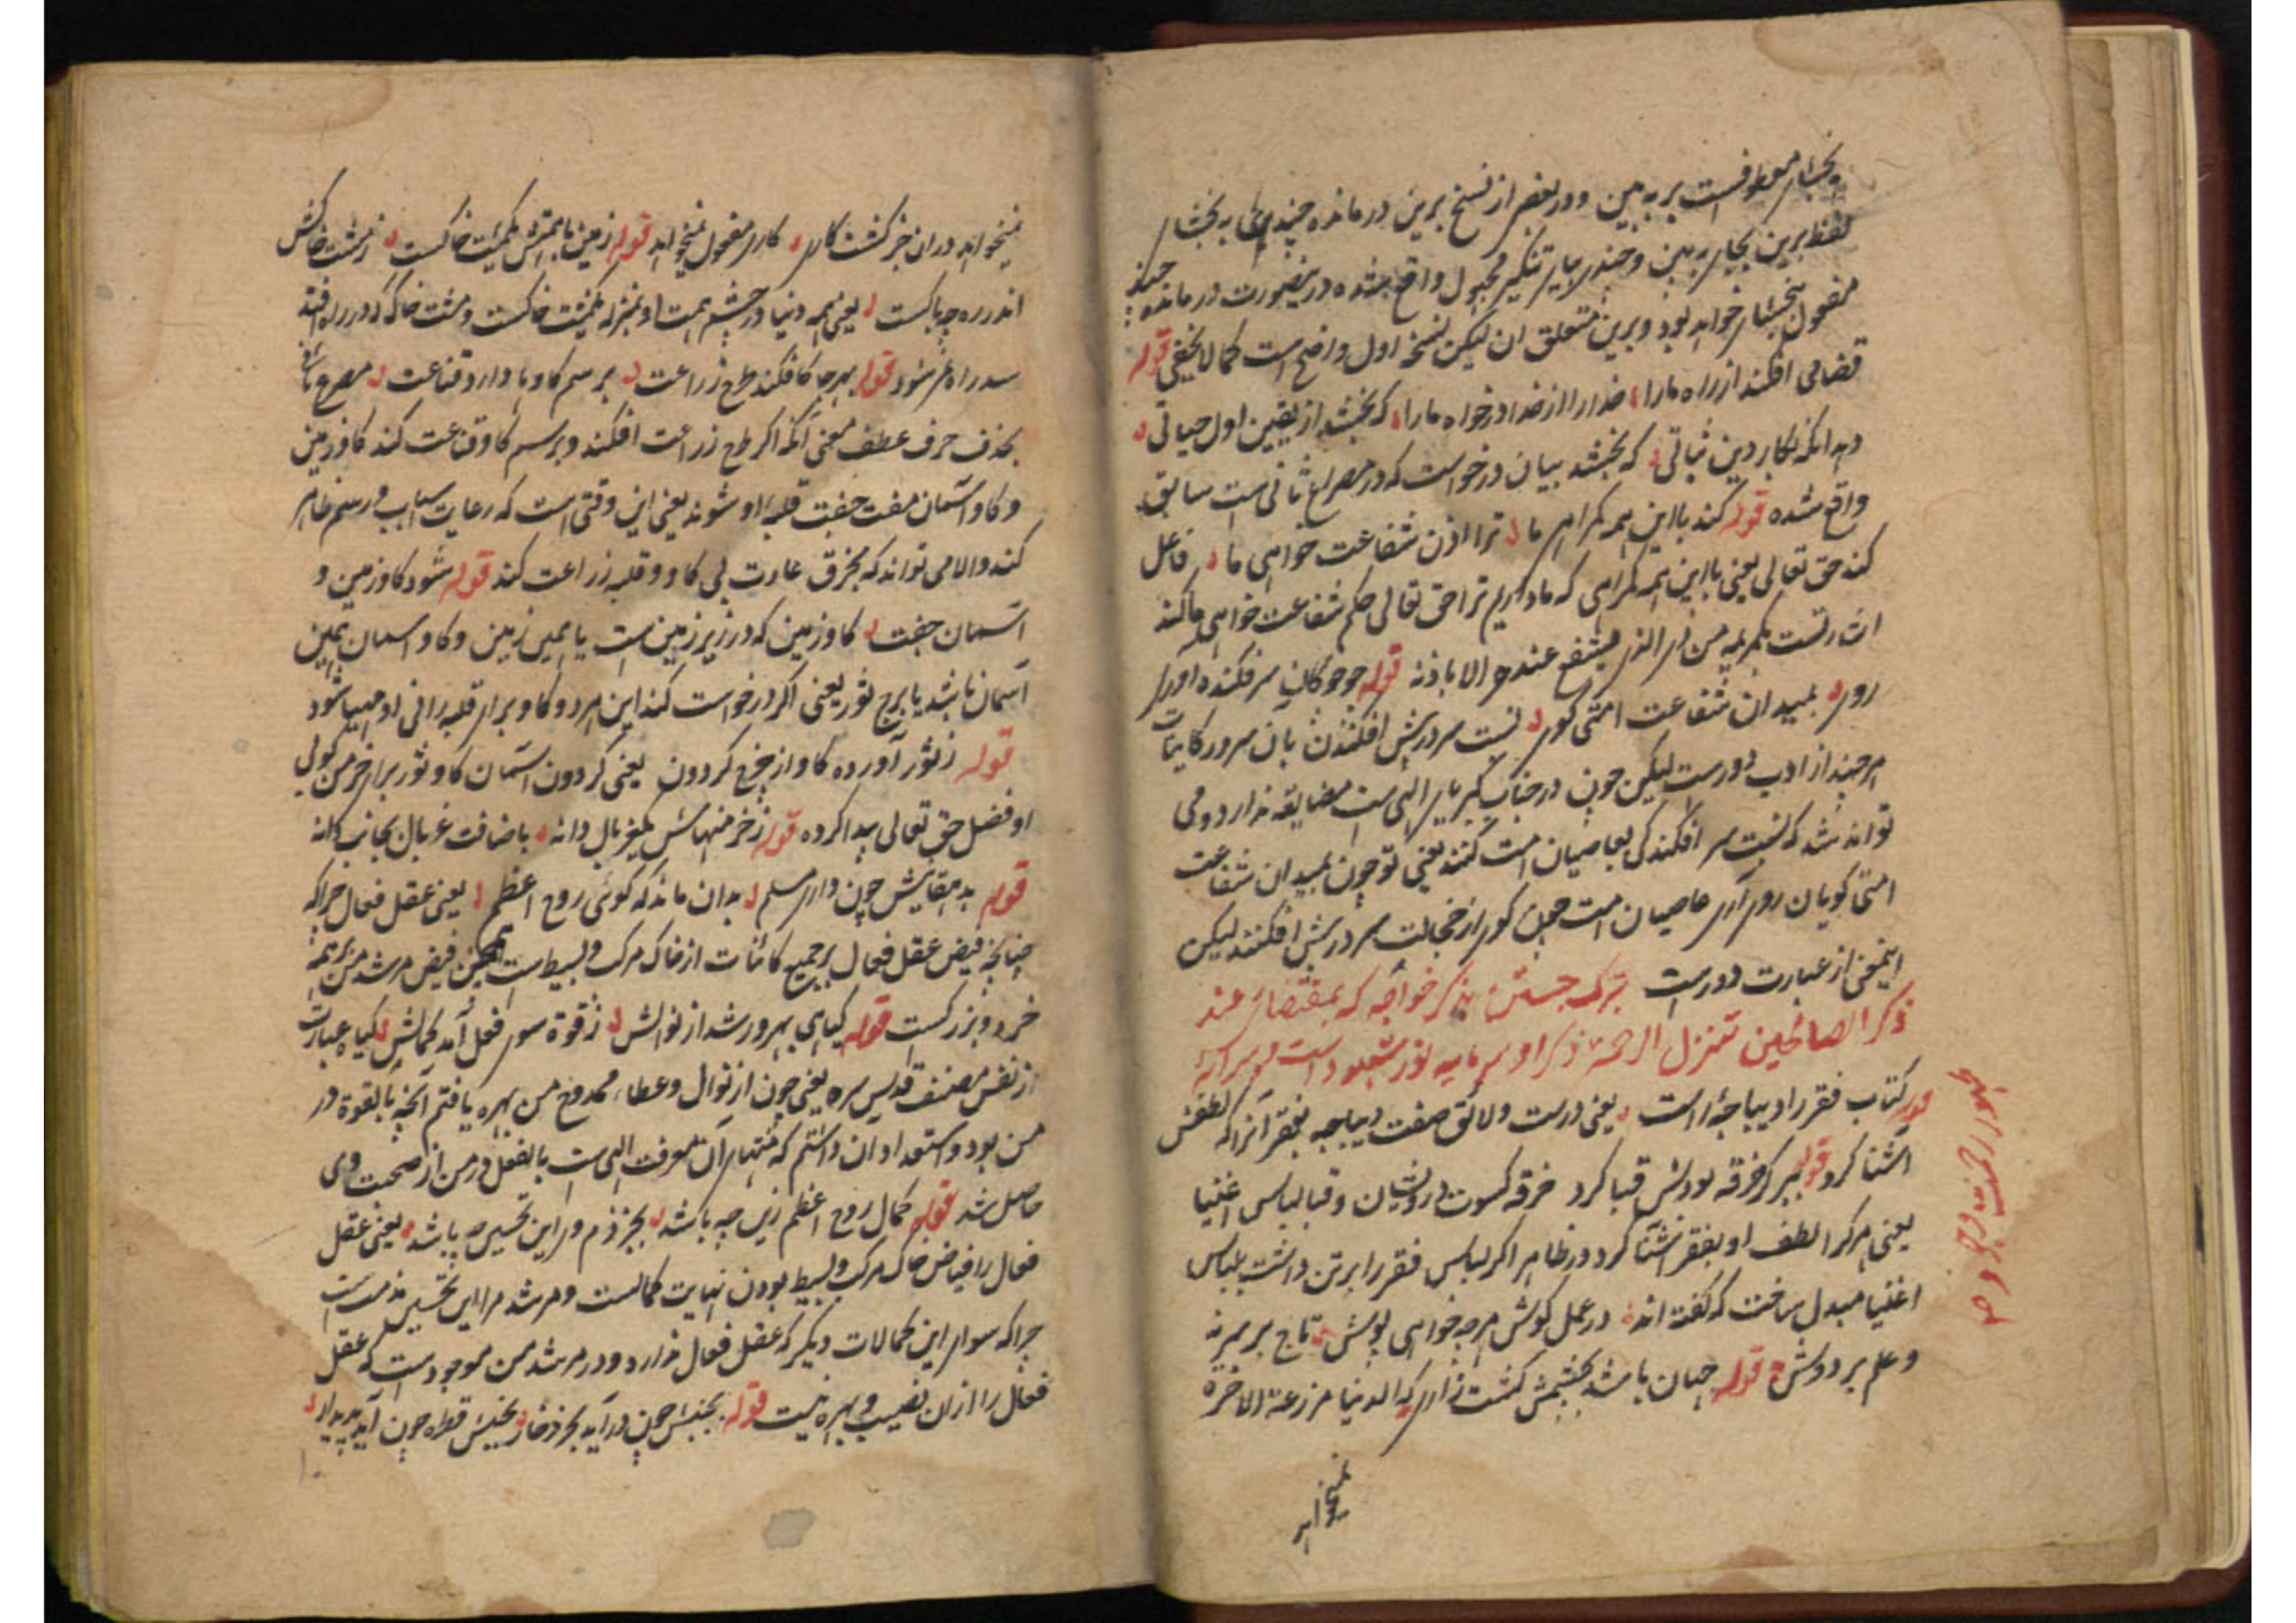 بخشای معطوفست بر به بین و در بعضی از نسخ برین درمانده چندی به بخشای
لفظ برین بجای به بین و چندی بیای تنکیر مجهول واقع شده درینصورت درمانده چند
مفعول ببخشای خواهد بود و برین متعلق ان لیکن نسخه اول واضح است کما لا یخفی قوله
قضا می افکند از راه ما را خدا را از خدا درخواه ما را که بخشد از یقین اول حیاتی
دهد انکه بکار دین ثباتی که بخشد بیان درخواست که در مصراع ثانی بیت سابق
واقع شده قوله کند با این همه کمراهی ما ترا اذن شفاعت خواهی ما فاعل
کند حق تعالی یعنی با این همه کمراهی که ما داریم ترا حق تعالی حکم شفاعت خواهی ما کند
اشارتست بکریمه من ذا الذی یشفع عنده الا باذنه قوله چو چوکان سرفکنده اوری
روی بمیدان شفاعت امتی کوی نسبت سر درپیش افکندن بان سرور کاینات
هرچند از ادب دورست لیکن چون در جناب کبریای الهی ست مضایقه ندارد و می
تواند شد که نسبت سر افکندکی بعاصیان امت کنند یعنی تو چون بمیدان شفاعت
امتی کویان روی آری عاصیان امت چون کوی از خجالت سر درپیش افکنند لیکن
اینمعنی از عبارت دورست تبرک جستن بذکر خواجه که بمقتضای عند
ذکر الصالحین تتنزل الرحمة ذکر او سرمایه نور
قوله کتاب فقر را دیباجهٔ راست یعنی درست و لائق صفت دیباجه بفقر آنرا که لطفش
اشنا کرد قوله ببر کر خرقه بودش قبا کرد خرقه کسوت درویشان و قبا لباس اغنیا
یعنی هرکرا لطف او بفقر اشنا کرد در ظاهر اکر لباس فقر را بر تن داشت بلباس
اغنیا مبدل ساخت که کفته اند در عمل کوش هرچه خواهی پوش تاج بر سر نه
و علم بر دوش قوله جهان باشد بچشمش کشت زاری که الدنیا مزرعة الاخرة
نمیخواهد
نمیخواهد دران جز کشت کاری کاری مفعول نمیخواهد قوله زمین با همتش یکمشت خاکست ز مشت خاکش
اندر ره چه باکست یعنی همه دنیا در چشم همت او بمنزله یکمشت خاکست و مشت خاک که در راه افتد
سد راه نمی شود قوله بهر جا کافکند طرح زراعت بر رسم کاو با دارد قناعت مصرع ثانی
بحذف حرف عطف معنی آنکه اکر طرح زراعت افکند و بر رسم کاو قناعت کند کاو زمین
و کاو آسمان مفت جفت قلبهٔ او شوند یعنی این وقتی است که رعایت اسباب و رسم ظاهر
کند والا می تواند که بخرق عادت بی کاو و قلبه زراعت کند قوله شود کاو زمین و
آسمان جفت کاو زمین که در زیر زمین ست یا همین زمین و کاو اسمان همین
آسمان باشد یا برج ثور یعنی اکر درخواست کند این هر دو کاو برای قلبه رانی او مهیا شود
قوله ز ثور آورده کاو از چرخ کردون یعنی کردون اسمان کاو ثور برای خرمن کوبی
او فضل حق تعالی پیدا کرده قوله ز خرمنهاش یکغربال دانه باضافت غربال بجانب دانه
قوله بدهقانیش چون داری مسلم بدان ماند که کوئی روح اعظم یعنی عقل فعال چرا که
چنانچه فیض عقل فعال بر جمیع کائنات از خاک مرکب و بسیط ست همچنین فیض مرشد من بر همه
خرد و بزرکست قوله کیاهی بهرور شد از نوالش ز قوة سوی فعل آمد کمالش کیاه عبارت
از نفس مصنف قدس سره یعنی چون از نوال و عطاء ممدوح من بهره یافتم آنچه بالقوة در
من بود و استعداد ان داشتم که منتهای آن معرفت الهی ست بالفعل در من از صحبت وی
حاصل شد قوله کمال روح اعظم زین چه باشد بجز ذم ورا این تحسین چه باشد یعنی عقل
فعال را فیاض خاک مرکب و بسیط بودن نهایت کمالست و مرشد مرا این تحسین مذمت است
چرا که سوای این کمالات دیکر که عقل فعال ندارد و در مرشد من موجود ست که عقل
فعال را ازان نصیب و بهره نیست قوله بجنبش چون درآید بحر ذخار بجنبش قطره چون آید پدیدار